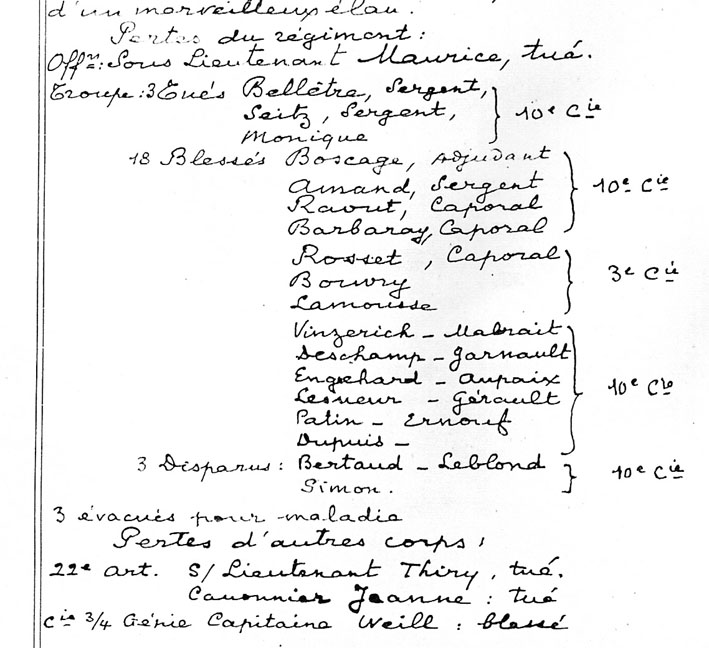 d'un merveilleux élan.
Pertes du régiment :
Offrs: Sous Lieutenant Maurice, tué.
Troupe : 3 Tués Bellêtre, Sergent,
Seitz, Sergent, 10e Cie
Monique
18 Blessés Boscage, Adjudant
Amand, Sergent 10e Cie
Raout, Caporal
Barbaray, Caporal
Rosset, Caporal
Bouvry 3e Cie
Lamousse
Vinzerich - Malrait
Deschamp - Garnault
Engehard - Aupaix
Lesueur - Gérault 10e Cie
Patin - Ernouf
Dupuis -
3 Disparus : Bertaud - Leblond 10e Cie
Simon.
3 évacués pour maladie
Pertes d'autres corps :
22e Art. S/ Lieutenant Thiry, tué.
Canonnier Jeanne : tué
Cie 3/4 Génie Capitaine Weill : blessé